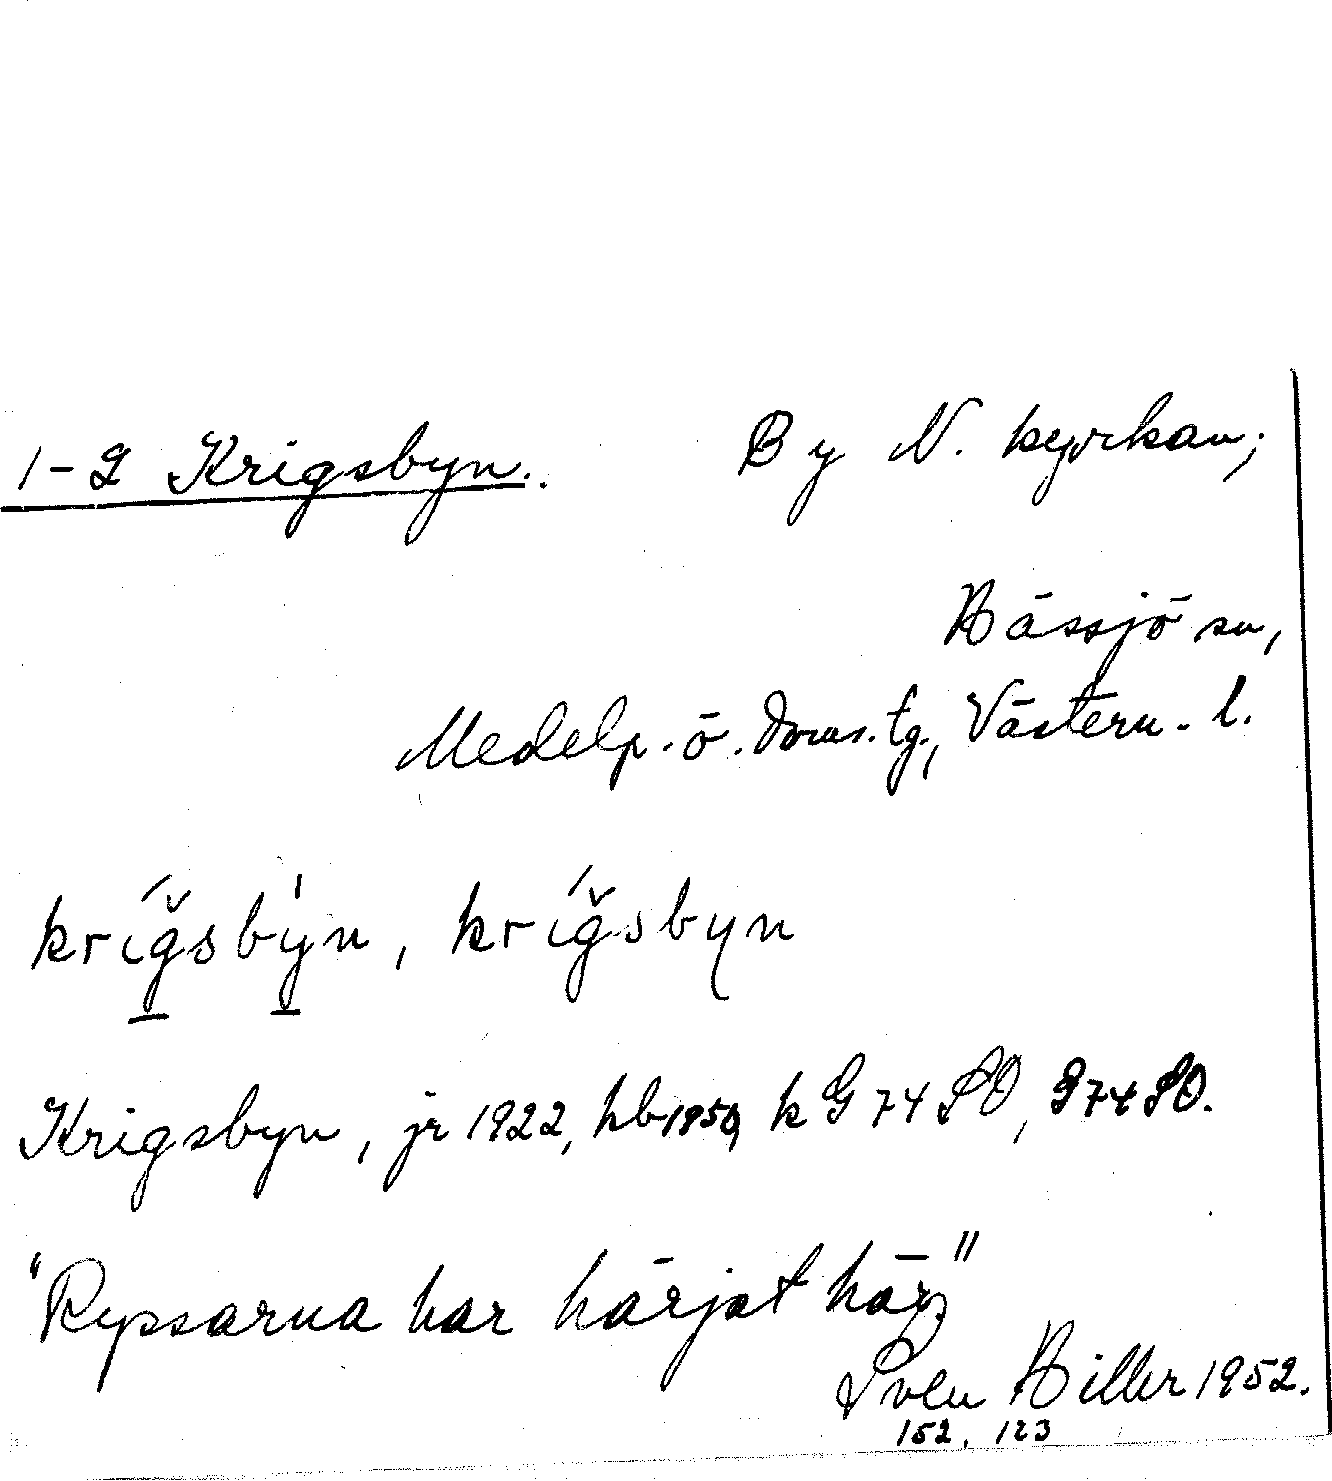 1-2 Krigsbyn. By N. kyrkan;
Hässjö sn,
Medelp. ö. doms. tg., Västern. l.
krígsby̍n, krígsbyn
Krigsbyn, jr 1922, hb 1950, k G 74 SO, g 74 SO.
"Ryssarna har härjat här"
Sven Hiller 1952.
152, 123